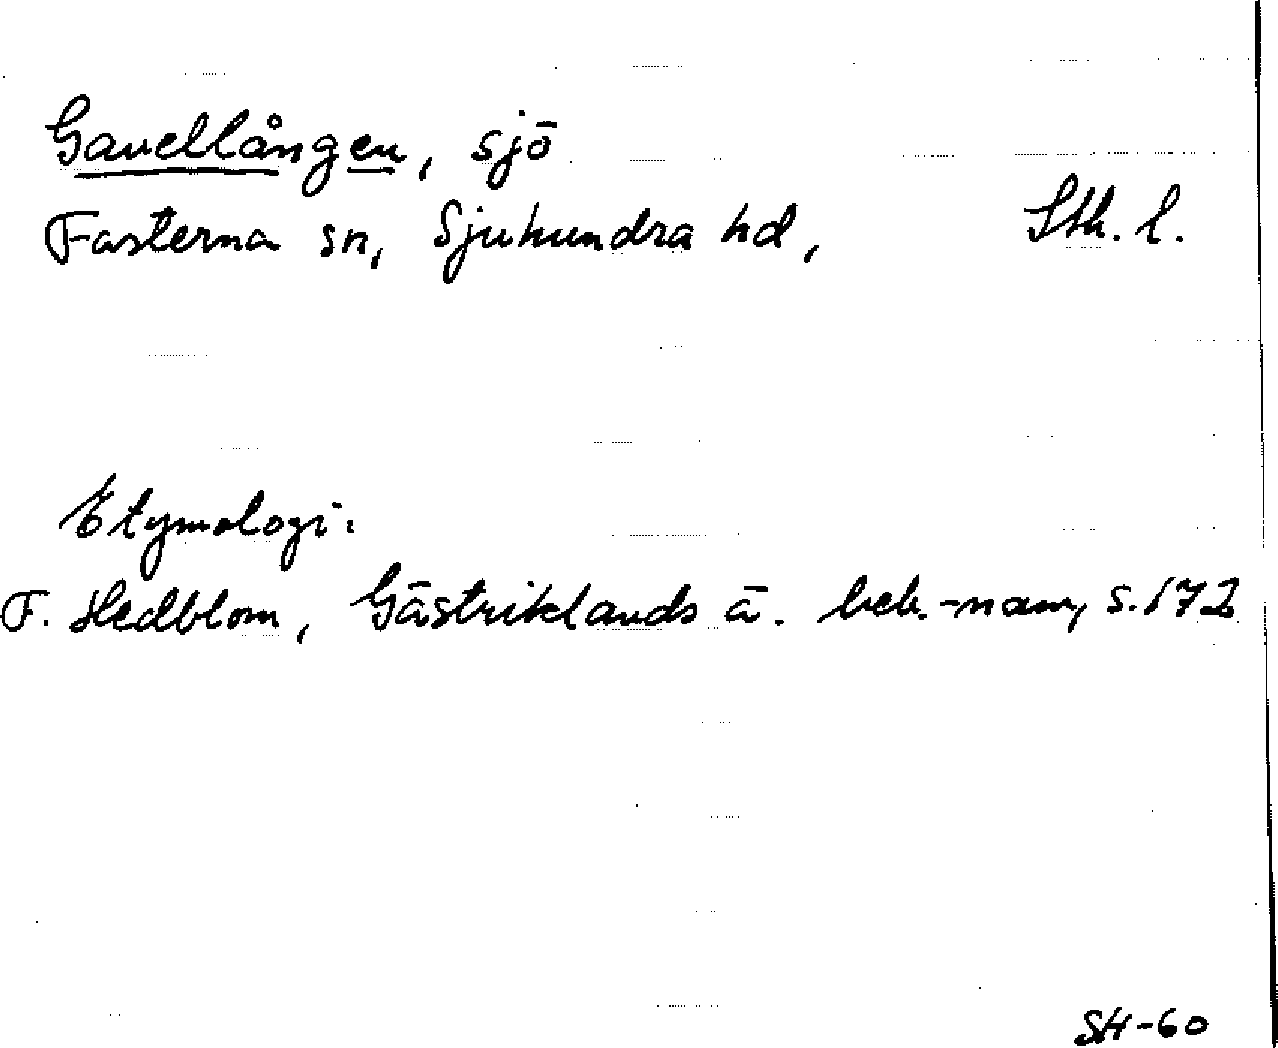 Gavellången, sjö
Fasterna sn, Sjuhundra hd, Sth. l.
Etymologi:
F. Hedblom, Gästriklands ä. beb.-namn, s. 172
SH-60